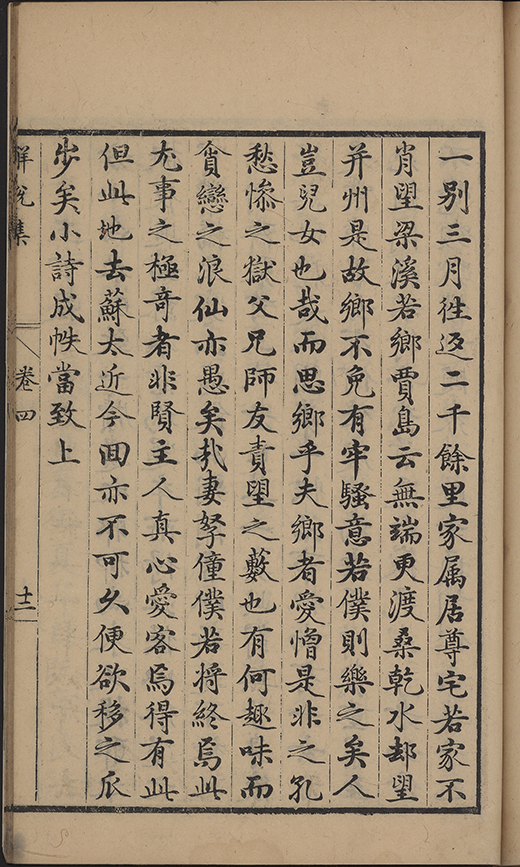 一别三月徃返二千餘里家属居尊宅若家不
肖望梁溪若鄉賈島云無端更渡桑乾水却望
并州是故鄉不免有牢騷意若僕則樂之矣人
豈兒女也哉而思鄉乎夫鄉者愛憎是非之孔
愁慘之獄父兄師友責望之藪也有何趣味而
貪戀之浪仙亦愚矣我妻孥僮僕若將終焉此
尤事之極奇者非賢主人真心愛客焉得有此
但此地去蘇太近今囬亦不可久便欲移之瓜
步矣小詩成帙當致上
解脫集
卷四
十二